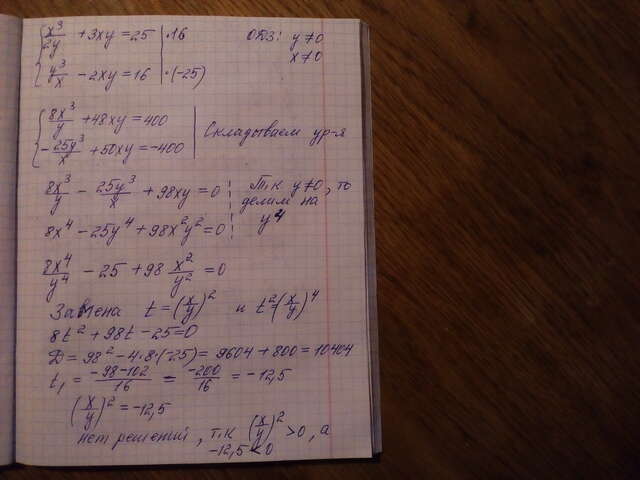 { x³/2y + 3xy = 25 | ·16 ОДЗ: y≠0
{ y³/x − 2xy = 16 | ·(−25) x≠0
{ 8x³/y + 48xy = 400
{ −25y³/x + 50xy = −400 | Складываем ур-я
8x³/y − 25y³/x + 98xy = 0 | Т.к y≠0, то
делим на
8x⁴ − 25y⁴ + 98x²y² = 0 | y⁴
8x⁴/y⁴ − 25 + 98 x²/y² = 0
Замена t = (x/y)² и t² = (x/y)⁴
8t² + 98t − 25 = 0
D = 98² − 4·8·(−25) = 9604 + 800 = 10404
t₁ = (−98−102)/16 = −200/16 = −12,5
(x/y)² = −12,5
нет решений, т.к (x/y)² > 0, а
−12,5 < 0